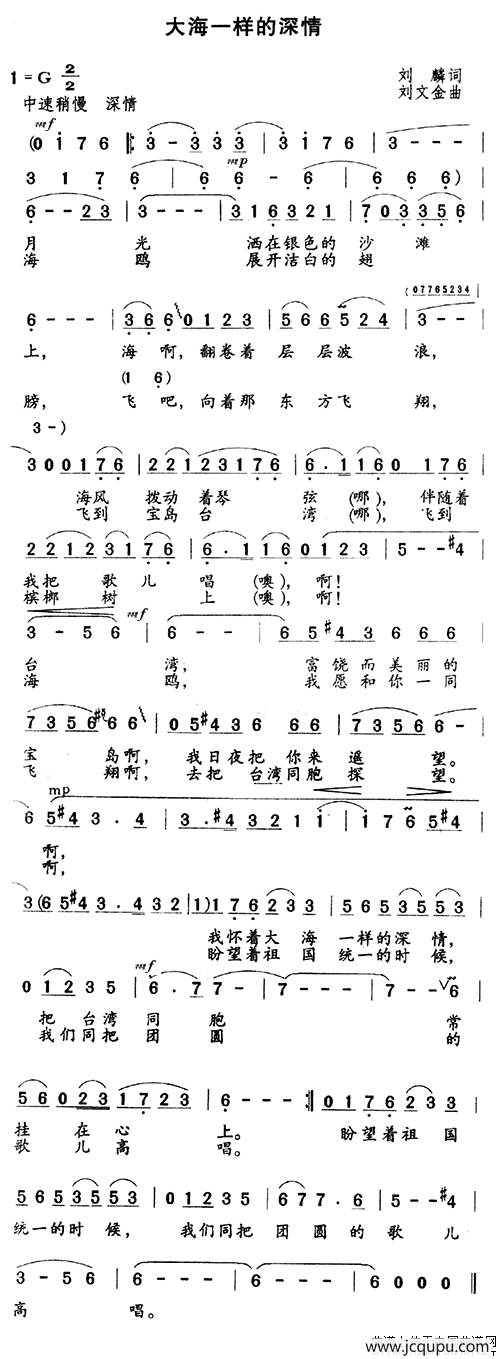 大海一样的深情
1=G 2/2
刘 麟词
中速稍慢 深情
刘文金曲
mf
(0 1 7 6 |: 3 - 3 3 3 | 3 1 7 6 | 3 - - - |
mp
3 1 7 6 | 6 | 6 6 - 6 | 6 6 6 ) |
6 - - 2 3 | 3 - - - | 3 1 6 3 2 1 | 7 0 3 3 5 6 |
月 光 洒在银色的 沙 滩
海 鸥 展开洁白的 翅
(07765234
6 - - - | 3 6 6 0 1 2 3 | 5 6 6 5 2 4 | 3 - -
上, 海 啊, 翻卷着 层 层波 浪,
(1 6)
膀, 飞 吧, 向着那 东 方飞 翔,
3 -)
3 0 0 1 7 6 | 2 2 1 2 3 1 7 6 | 6 . 1 1 6 0 1 7 6 |
海风 拨动 着琴 弦 (哪), 伴随着
飞到 宝岛 台 湾 (哪), 飞到
2 2 1 2 3 1 7 6 | 6 . 1 1 6 0 1 2 3 | 5 - - #4
我把 歌儿 唱 (噢), 啊!
槟榔 树 上 (噢), 啊!
mf
3 - 5 6 | 6 - - - | 6 5 #4 3 6 6 6 |
台 湾, 富饶而美丽的
海 鸥, 我愿和你一同
7 3 5 6 #6 6 6 | 0 5 #4 3 6 6 6 | 7 3 5 6 6 - |
宝 岛啊, 我日夜把 你来 遥 望。
飞 翔啊, 去把 台湾同胞 探 望。
mp
6 5 #4 3 . 4 | 3 . #4 4 3 2 1 1 | 1 1 7 6 5 #4
啊,
啊,
3 (6 5 #4 3 . 4 3 2 | 1) 1 7 6 2 3 3 | 5 6 5 3 5 5 3 |
我怀着大 海 一样的深 情,
盼望着祖 国 统一的时 候,
mf
0 1 2 3 5 | 6 . 7 7 - | 7 - - - | 7 - - 6
把 台湾 同 胞 常
我们同把 团 圆 的
5 6 0 2 3 1 7 2 3 | 6 - - - :| 0 1 7 6 2 3 3 |
挂 在 心 上。 盼望着祖 国
歌 儿 高 唱。
5 6 5 3 5 5 3 | 0 1 2 3 5 | 6 7 7 . 6 | 5 - - #4
统一的时 候, 我们同把 团 圆的 歌 儿
3 - 5 6 | 6 - - - | 6 - - - | 6 0 0 0 ‖
高 唱。
www.jcqupu.com